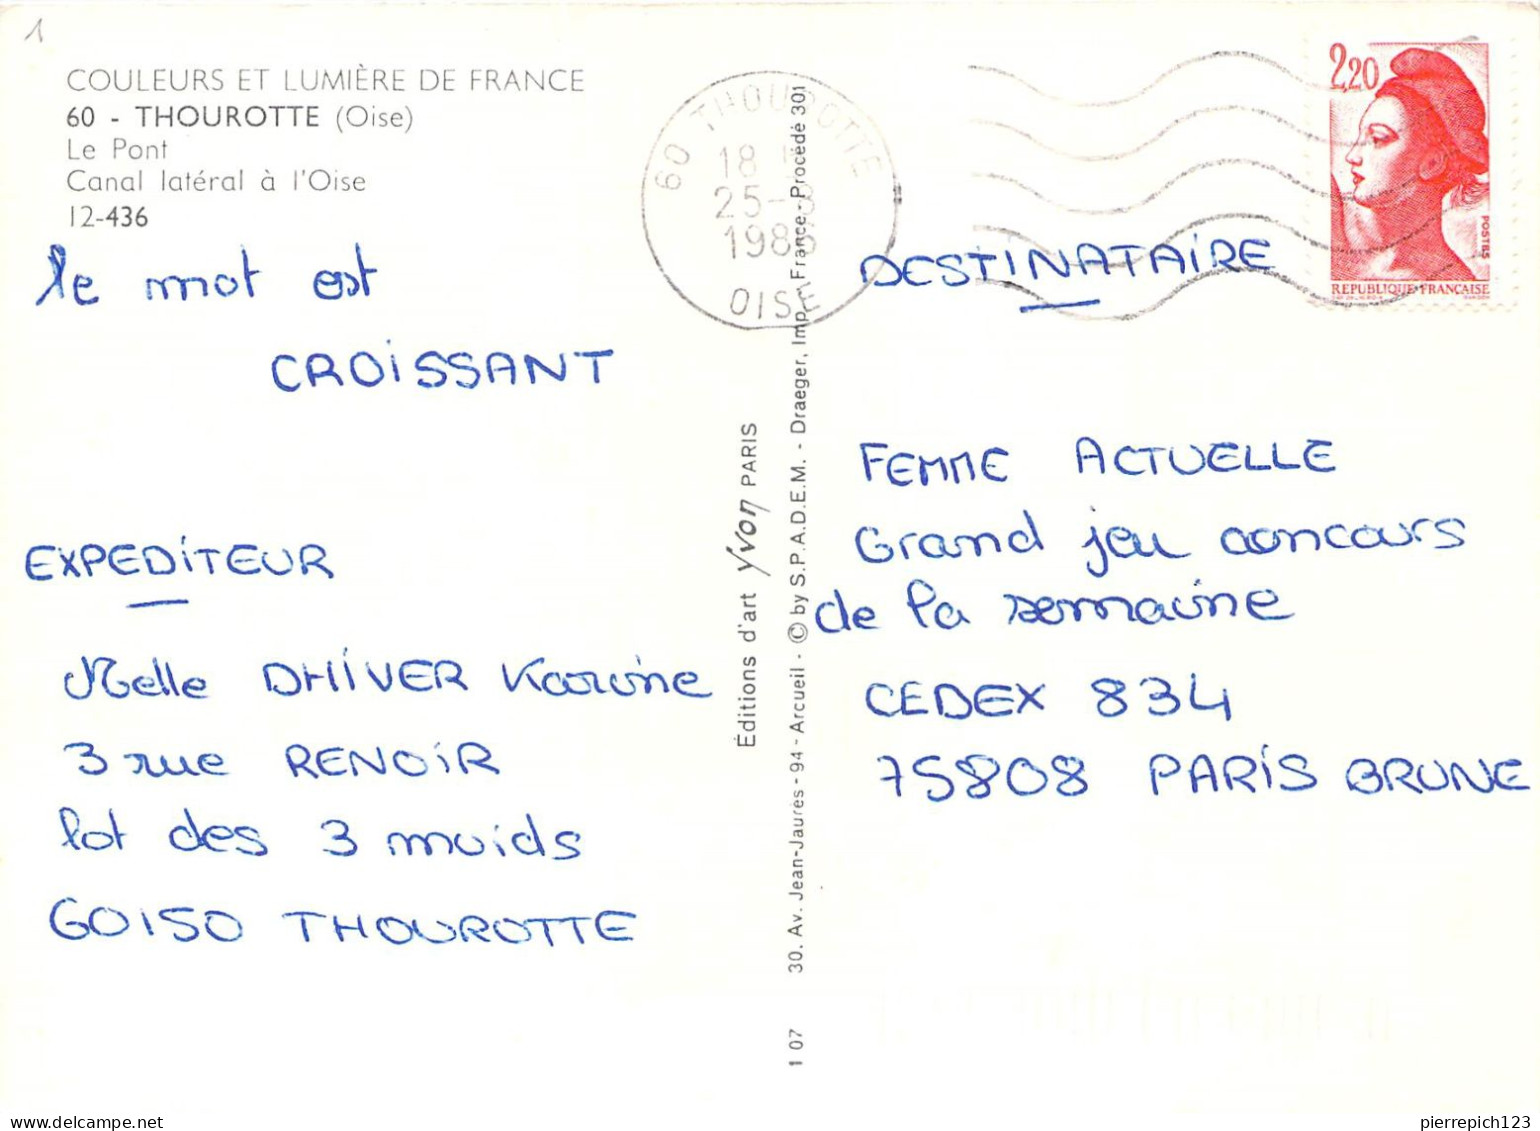 1
COULEURS ET LUMIÈRE DE FRANCE
60 - THOUROTTE (Oise)
Le Pont
Canal latéral à l'Oise
12-436
le mot est
CROISSANT
EXPEDITEUR
Melle DHIVER Karine
3 rue RENOIR
lot des 3 muids
60150 THOUROTTE
60 THOUROTTE
18
25-8
198
OISE
Éditions d'art Yvon PARIS
30. Av. Jean-Jaurès - 94 - Arcueil - © by S.P.A.D.E.M. - Draeger, Imp. France - Procédé 301
1 07
2,20
POSTES
REPUBLIQUE FRANÇAISE
DESTINATAIRE
FEMME ACTUELLE
Grand jeu concours
de la semaine
CEDEX 834
75808 PARIS BRUNE
pierrepich123